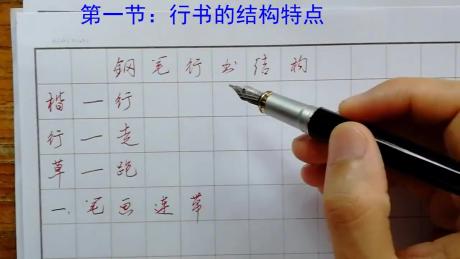 第一节：行书的结构特点
钢笔行书结构
楷一行
行一走
草一跑
一、笔画连草